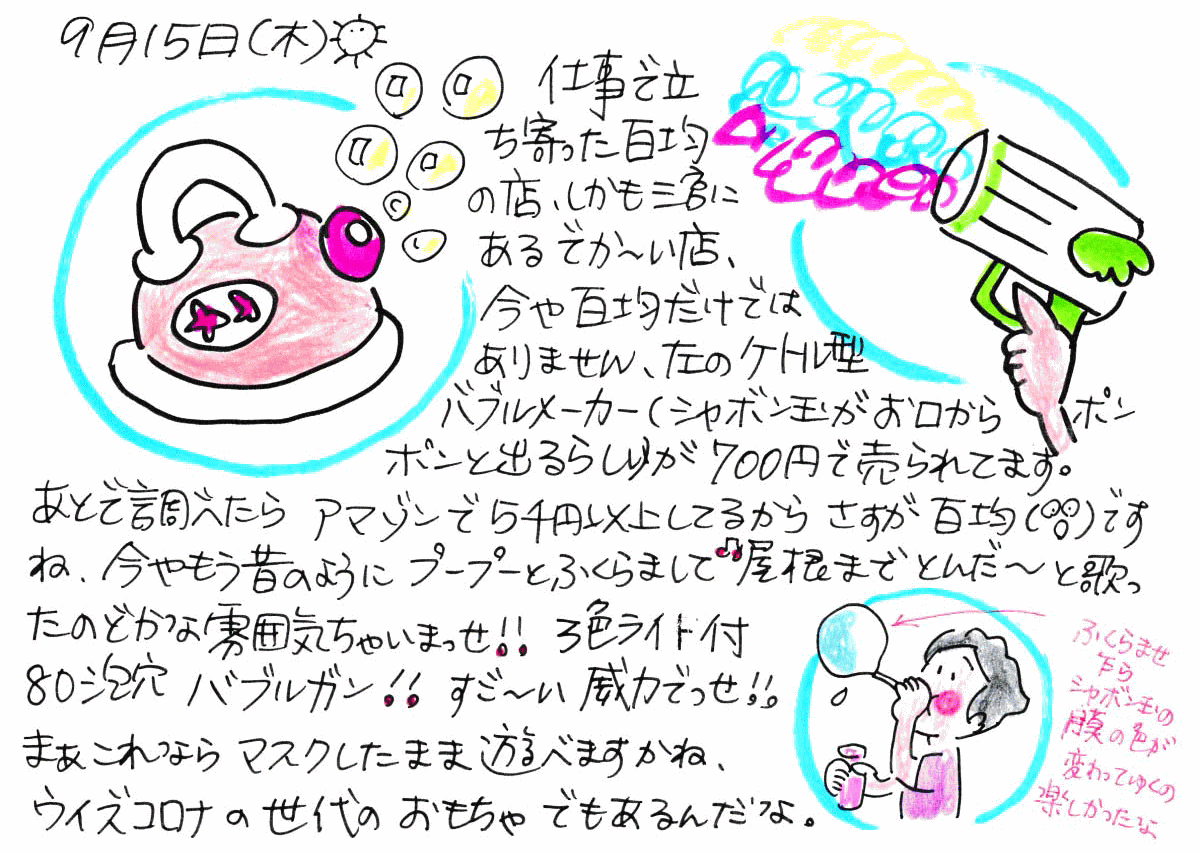 9月15日(木)
仕事で立
ち寄った百均
の店、しかも三宮に
あるでか〜い店、
今や百均だけでは
ありません、左のケトル型
バブルメーカー(シャボン玉がお口から ポン
ポンと出るらしゅが700円で売られてます。
あとで調べたら アマゾンで5千円以上してるから さすが百均(%)です
ね、今やもう昔のように プープーとふくらまして♫屋根までとんだ〜と歌っ
たのどかな雰囲気ちゃいまっせ!! 3色ライト付
80泡穴 バブルガン!! すご〜い威力でっせ!!
まぁこれなら マスクしたまま遊べますかね、
ウイズコロナの世代の おもちゃ でもあるんだな。
ふくらませ
乍ら
シャボン玉の
膜の色が
変わってゆくの
楽しかったな